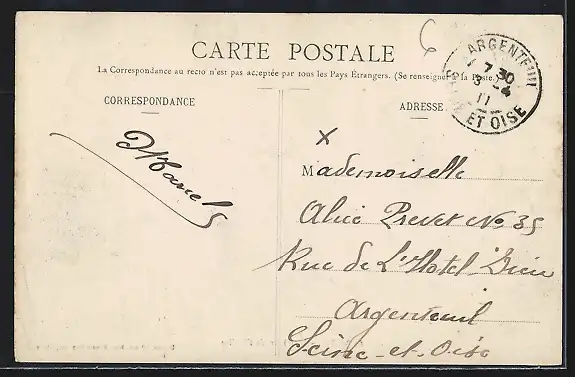 CARTE POSTALE
La Correspondance au recto n'est pas acceptée par tous les Pays Étrangers. (Se renseigner à la Poste.)
CORRESPONDANCE
ADRESSE
ARGENTEUIL
7 30
3 -4
11
ET OISE
6
x
Mademoiselle
Alice Prevet No 35
Rue de L'Hotel Dieu
Argenteuil
Seine-et-Oise